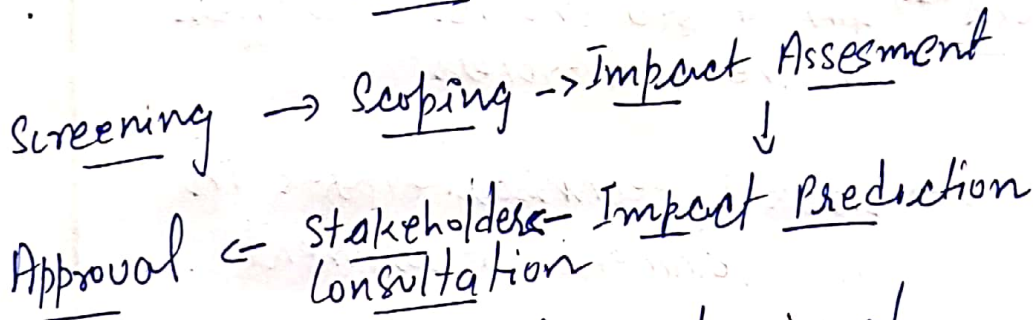 Screening → Scoping -> Impact Assesment
↓
Approval ← Stakeholders ← Impact Prediction
Consultation